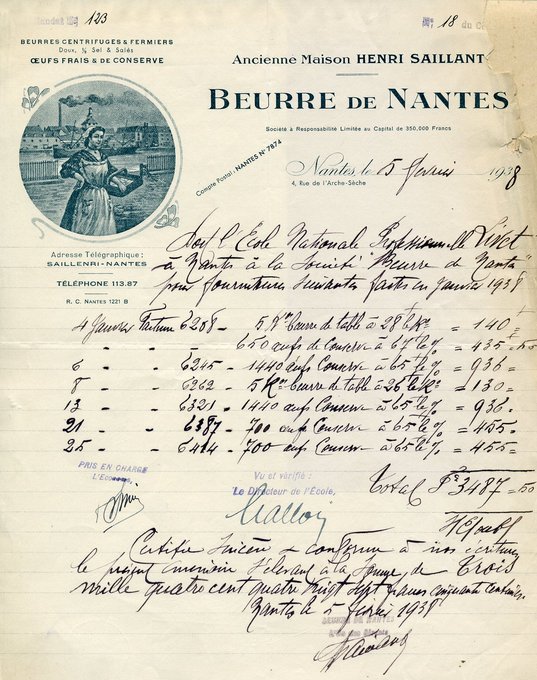 Mandat № 123
№ 18 du C
BEURRES CENTRIFUGES & FERMIERS
Doux, ½ Sel & Salés
ŒUFS FRAIS & DE CONSERVE
Ancienne Maison HENRI SAILLANT
BEURRE DE NANTES
Société à Responsabilité Limitée au Capital de 350.000 Francs
Compte Postal : NANTES N° 7874
Nantes, le 5 février 1938
4, Rue de l'Arche-Sèche
Adresse Télégraphique :
SAILLENRI-NANTES
TÉLÉPHONE 113.87
R. C. NANTES 1221 B
Doit l'Ecole Nationale Professionnelle Livet
à Nantes à la Société "Beurre de Nantes"
pour fournitures suivantes faites en Janvier 1938
4 Janvier Facture 6208 - 5 Kos beurre de table à 28 le Ko = 140 =
- - - 650 œufs de Conserve à 67 le % = 435 = 50
6 - 6245 - 1440 œufs Conserve à 65 le % = 936 =
8 - 6262 - 5 Kos beurre de table à 26 le Ko = 130 =
13 - 6321 - 1440 œufs Conserve à 65 le % = 936 =
21 - 6387 - 700 œufs Conserve à 65 le % = 455 =
25 - 6414 - 700 œufs Conserve à 65 le % = 455 =
PRIS EN CHARGE
L'Econome,
Vu et vérifié :
Le Directeur de l'École,
Total Frs 3487 = 50
Certifié sincère & conforme à nos écritures
le présent mémoire s'élevant à la somme de Trois
mille quatre cent quatre vingt sept francs cinquante centimes
Nantes le 5 février 1938
BEURRE DE NANTES